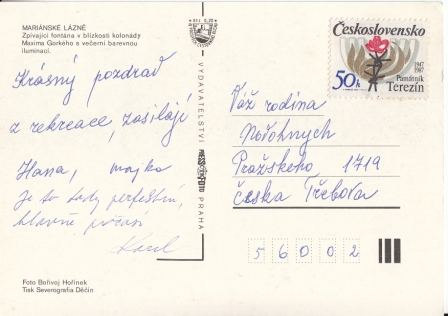 MARIÁNSKÉ LÁZNĚ
Zpívající fontána v blízkosti kolonády
Maxima Gorkého s večerní barevnou
iluminací.
Krásný pozdrav
z rekreace zasílají
Hana, majka
Je to tady perfektní,
hlavně počasí
Karel
Foto Bořivoj Hořínek
Tisk Severografia Děčín
VYDAVATELSTVÍ PRESSFOTO PRAHA
Československo
1947
1987
Památník
Terezín
50h
Váž rodina
Pražského 1719
Česká Třebová
56002